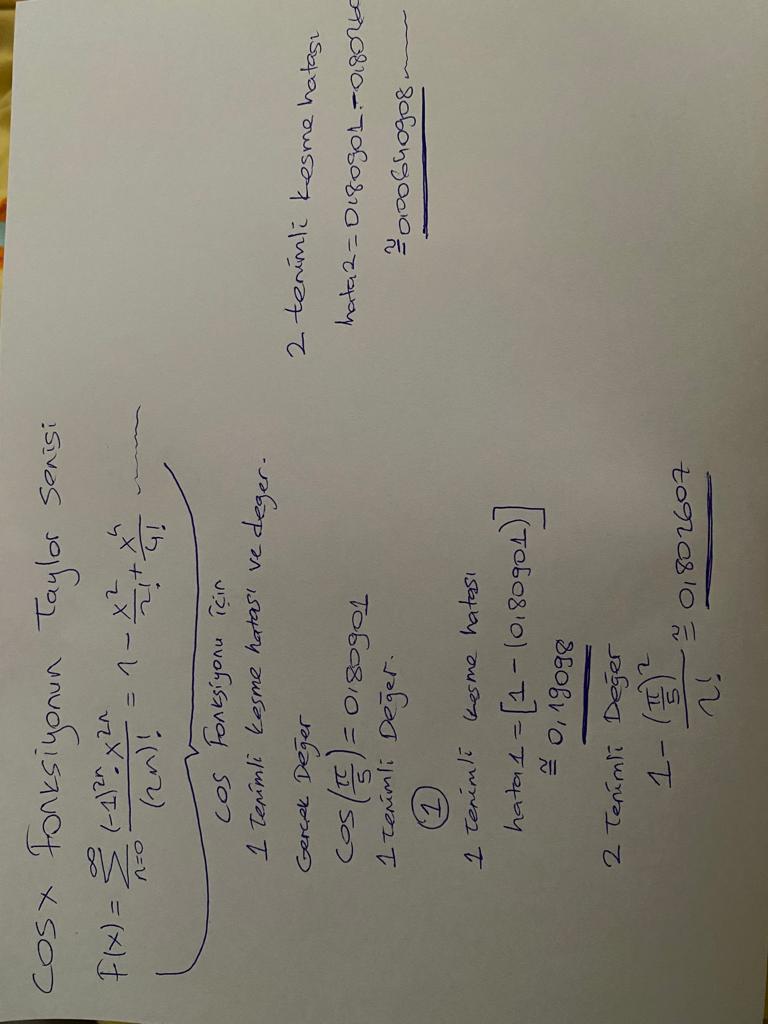 COSX Fonksiyonun Taylor Serisi
F(x) = ∑_{n=0}^{∞} (-1)^{2n} · x^{2n} / (2n)! = 1 - x^2/2! + x^4/4!
COS Fonksiyonu için
1 Terimli kesme hatası ve değer.
Gercek Değer
COS(π/5) = 0,80901
1 terimli Değer.
1
1 Terimli kesme hatası
hata1 = [1 - (0,80901)]
≅ 0,19098
2 Terimli Değer
1 - (π/5)^2 / 2! ≅ 0,802607
2 terimli kesme hatası
hata2 = 0,80901 - 0,80260
≅ 0,00640908